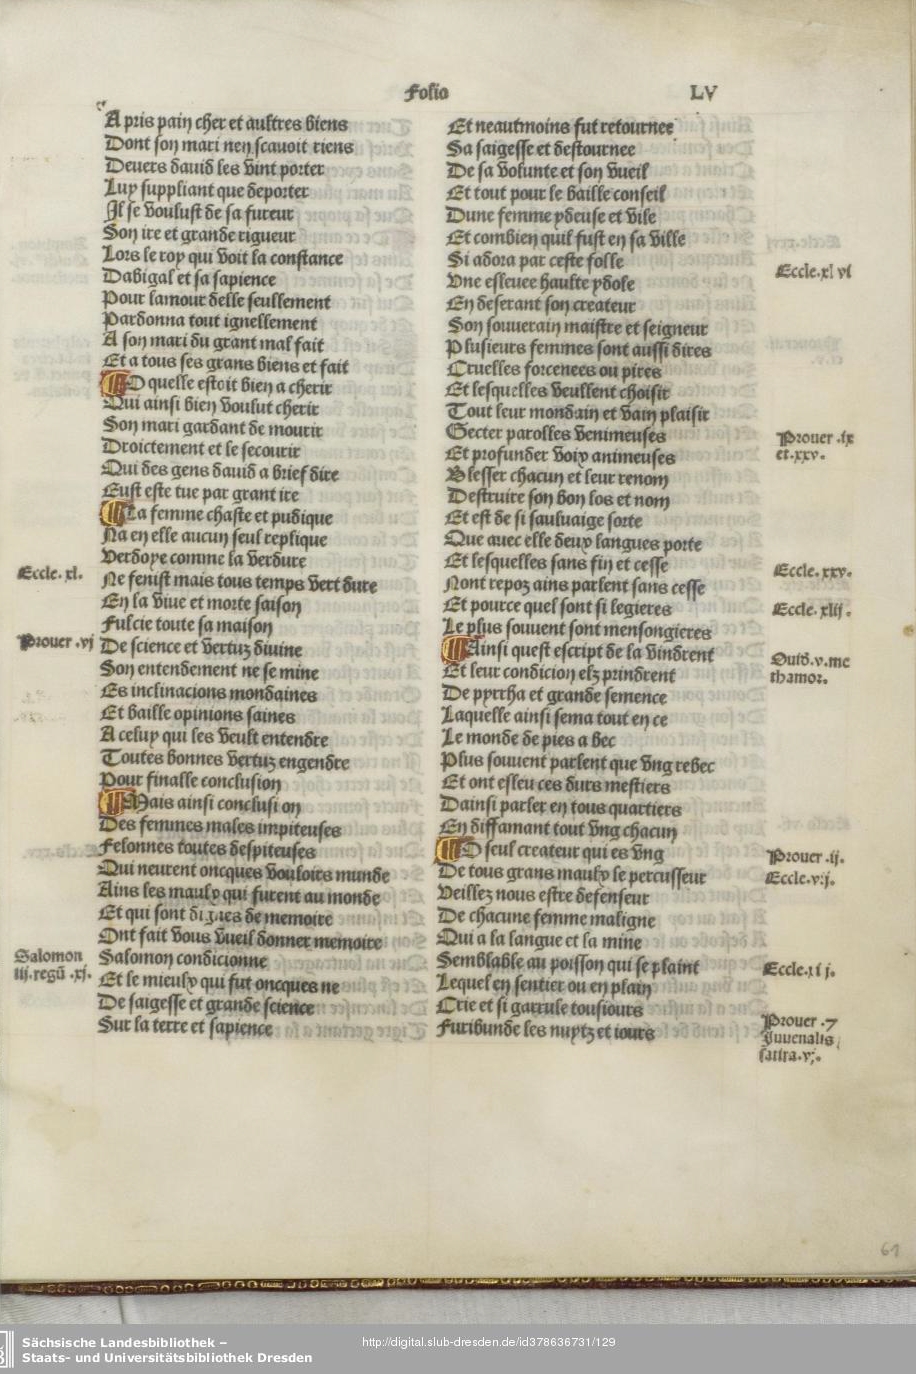 Folio LV
Apris pain cher et aultres biens
Dont son mari nen scavoit riens
Devers david les vint porter
Luy suppliant que deporter
Il se voulust de sa fureur
Son ire et grande rigueur
Lors le roy qui voit la constance
Dabigal et sa sapience
Pour lamour delle seullement
Pardonna tout ignellement
A son mari du grant mal fait
Et a tous ses grans biens et fait
O quelle estoit bien a cherir
Qui ainsi bien voulut cherir
Son mari gardant de mourir
Droictement et le secourir
Qui des gens david a brief dire
Eust este tue par grant ire
La femme chaste et pudique
Na en elle aucun seul replique
Verdoye comme la verdure
Eccle. xl.
Ne fenist mais tous temps vert dure
En la vive et morte saison
Fulcie toute sa maison
Prouer .vj
De science et vertuz divine
Son entendement ne se mine
Es inclinacions mondaines
Et baille opinions saines
A celuy qui les veult entendre
Toutes bonnes vertuz engendre
Pour finalle conclusion
Mais ainsi conclusi on
Des femmes males impiteuses
Felonnes toutes despiteuses
Qui neurent oncques vouloirs munde
Ains les maulx qui furent au monde
Et qui sont dignes de memoire
Ont fait vous vueil donner memoire
Salomon
iij. regū .xj.
Salomon condicionne
Et le mieulx qui fut oncques ne
De saigesse et grande science
Sur la terre et sapience
Et neautmoins fut retournee
Sa saigesse et destournee
De sa volunte et son vueil
Et tout pour le baille conseil
Dune femme ydeuse et vile
Et combien quil fust en sa ville
Si adora par ceste folle
Eccle. xl vi
Vne eslevee haulte ydole
En deserant son createur
Son souverain maistre et seigneur
Plusieurs femmes sont aussi dires
Cruelles forcenees ou pires
Et lesquelles veullent choisir
Tout leur mondain et vain plaisir
Gecter parolles venimeuses
Prouer .ix
et .xxv.
Et profunder voix animeuses
Blesser chacun et leur renom
Destruire son bon los et nom
Et est de si sauluaige sorte
Que avec elle deux langues porte
Et lesquelles sans fin et cesse
Eccle. xxv.
Nont repoz ains parlent sans cesse
Et pource quel sont si legieres
Eccle. xlij.
Le plus souvent sont mensongieres
Ainsi quest escript de la vindrent
Ouid. v. me
thamor.
Et leur condicion elz prindrent
De pyrrha et grande semence
Laquelle ainsi sema tout en ce
Le monde de pies a bec
Plus souvent parlent que vng rebec
Et ont esleu ces durs mestiers
Dainsi parler en tous quartiers
En diffamant tout vng chacun
O seul createur qui es vng
Prouer .ij.
De tous grans maulx le percusseur
Eccle. vij.
Veillez nous estre defenseur
De chacune femme maligne
Qui a la langue et la mine
Semblable au poisson qui se plaint
Eccle. xi j.
Lequel en sentier ou en plain
Crie et si garrule tousiours
Furibunde les nuytz et iours
Prouer .7
Iuvenalis
satira. vj.
61
Sächsische Landesbibliothek –
Staats- und Universitätsbibliothek Dresden
http://digital.slub-dresden.de/id378636731/129